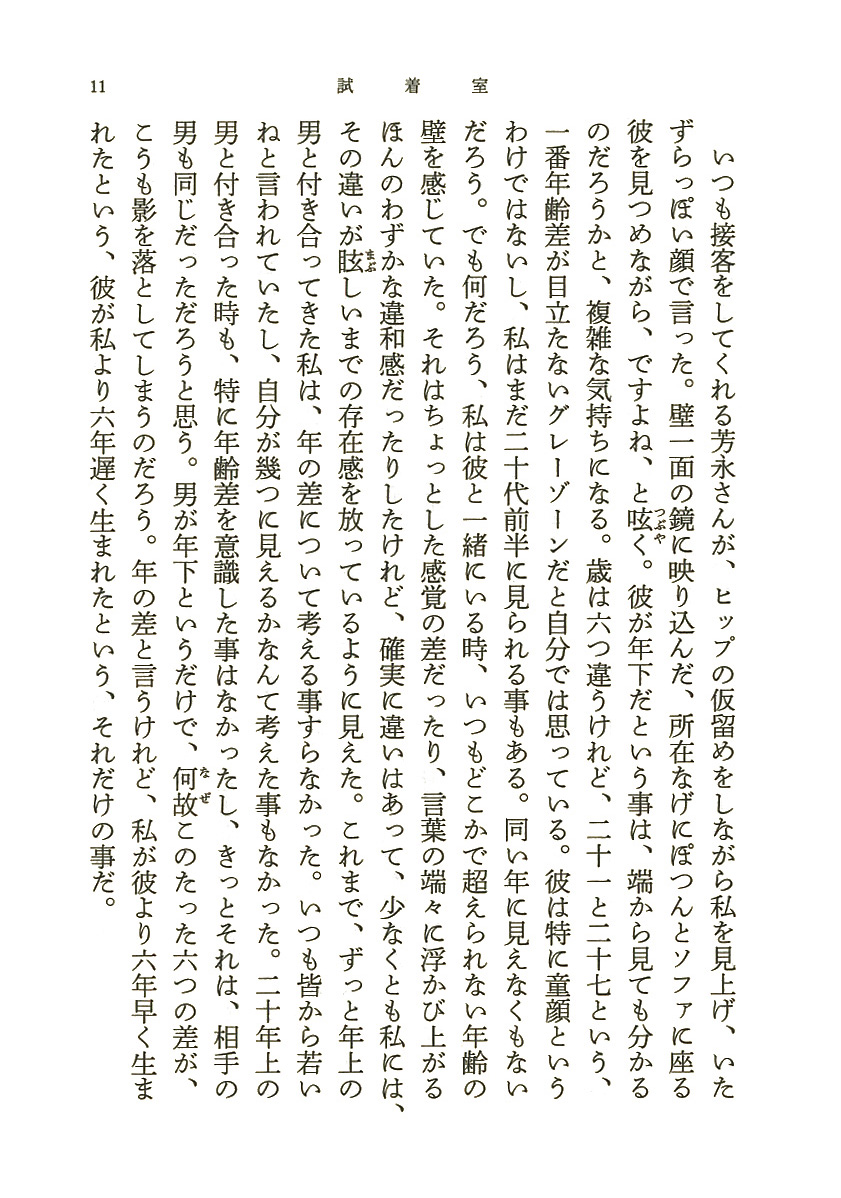 試着室
11
いつも接客をしてくれる芳永さんが、ヒップの仮留めをしながら私を見上げ、いた
ずらっぽい顔で言った。壁一面の鏡に映り込んだ、所在なげにぽつんとソファに座る
彼を見つめながら、ですよね、と呟つぶやく。彼が年下だという事は、端から見ても分かる
のだろうかと、複雑な気持ちになる。歳は六つ違うけれど、二十一と二十七という、
一番年齢差が目立たないグレーゾーンだと自分では思っている。彼は特に童顔という
わけではないし、私はまだ二十代前半に見られる事もある。同い年に見えなくもない
だろう。でも何だろう、私は彼と一緒にいる時、いつもどこかで超えられない年齢の
壁を感じていた。それはちょっとした感覚の差だったり、言葉の端々に浮かび上がる
ほんのわずかな違和感だったりしたけれど、確実に違いはあって、少なくとも私には、
その違いが眩まぶしいまでの存在感を放っているように見えた。これまで、ずっと年上の
男と付き合ってきた私は、年の差について考える事すらなかった。いつも皆から若い
ねと言われていたし、自分が幾つに見えるかなんて考えた事もなかった。二十年上の
男と付き合った時も、特に年齢差を意識した事はなかったし、きっとそれは、相手の
男も同じだっただろうと思う。男が年下というだけで、何故なぜこのたった六つの差が、
こうも影を落としてしまうのだろう。年の差と言うけれど、私が彼より六年早く生ま
れたという、彼が私より六年遅く生まれたという、それだけの事だ。